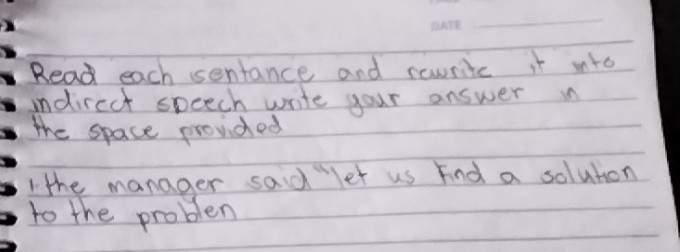 DATE
Read each sentance and rewrite it into
indirect speech write your answer in
the space provided
1. the manager said "let us find a solution
to the problen